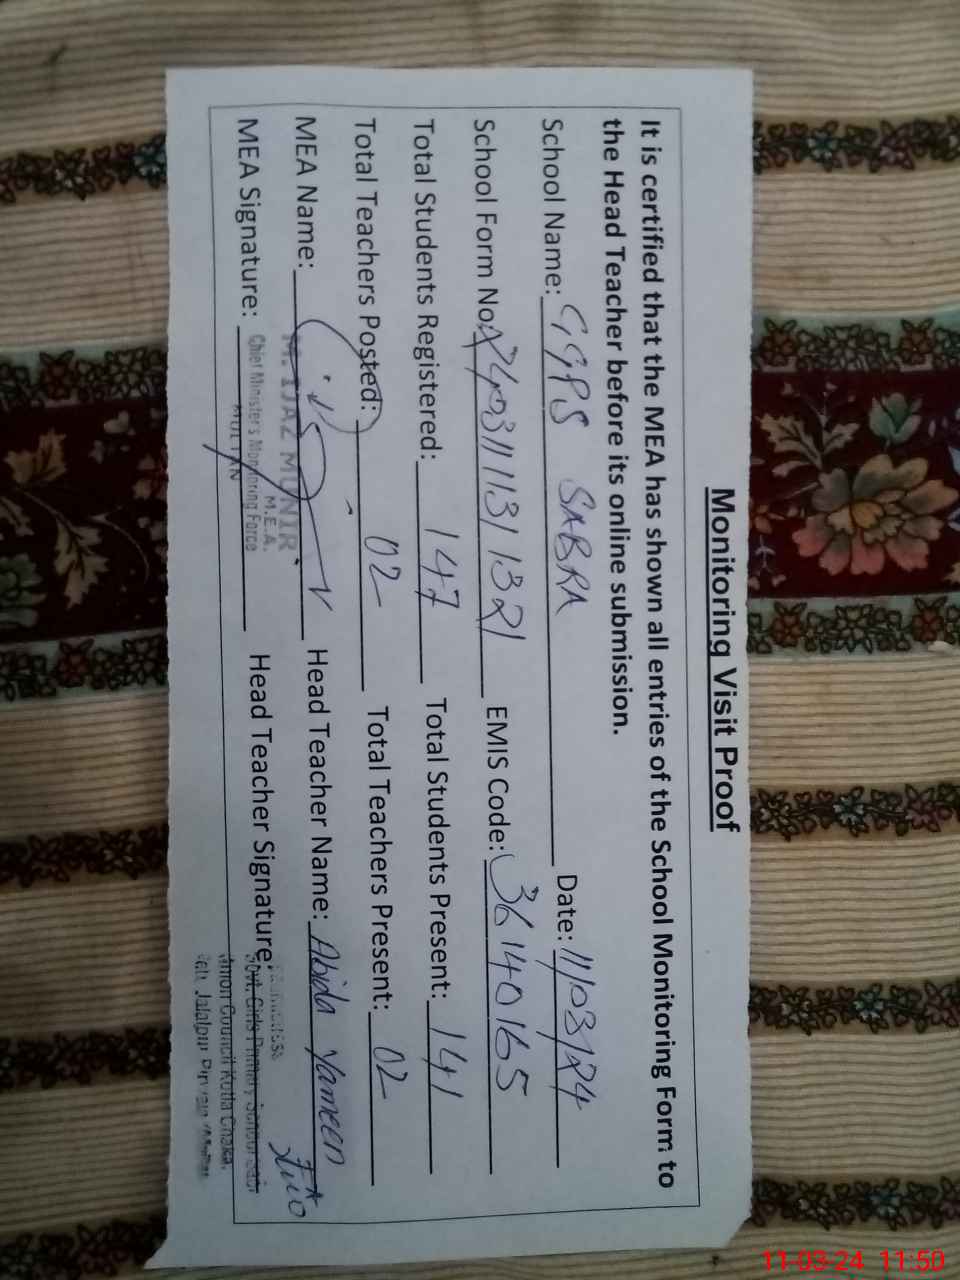 Monitoring Visit Proof
It is certified that the MEA has shown all entries of the School Monitoring Form to
the Head Teacher before its online submission.
School Name: GGPS SABRA Date: 11/03/24
School Form No: EMIS Code: 36140165
Total Students Registered: 147 Total Students Present: 141
Total Teachers Posted: 02 Total Teachers Present: 02
MEA Name: Head Teacher Name: Abida Yameen
M. IJAZ MUNIR
M.E.A.
MEA Signature: Head Teacher Signature:
Chief Minister's Monitoring Force
MULTAN
Govt. Girls Primary School
Union Council Kotla Chakar
Jalalpur
11-03-24 11:50